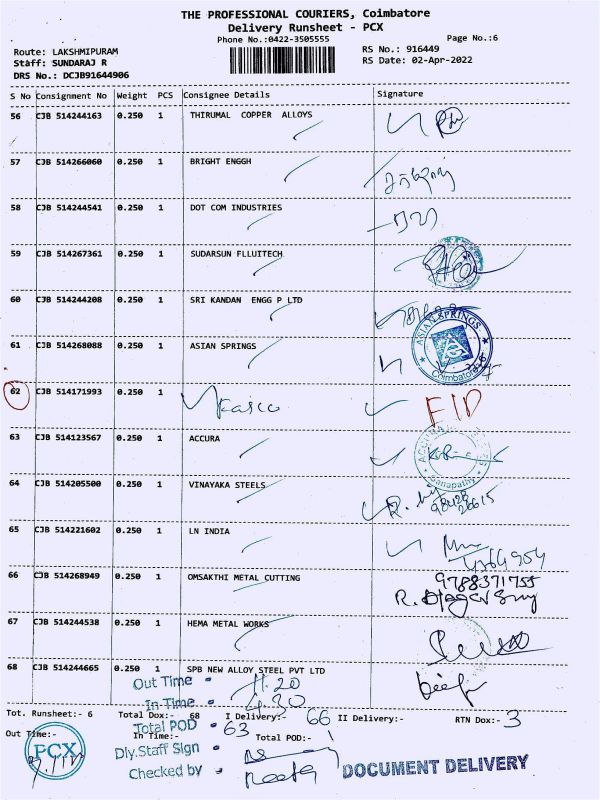 THE PROFESSIONAL COURIERS, Coimbatore
Delivery Runsheet - PCX
Phone No.:0422-3505555
Page No.:6
Route: LAKSHMIPURAM
RS No.: 916449
Staff: SUNDARAJ R
RS Date: 02-Apr-2022
DRS No.: DCJB91644906
S No Consignment No Weight PCS Consignee Details Signature
56 CJB 514244163 0.250 1 THIRUMAL COPPER ALLOYS
57 CJB 514266060 0.250 1 BRIGHT ENGGH
58 CJB 514244541 0.250 1 DOT COM INDUSTRIES
59 CJB 514267361 0.250 1 SUDARSUN FLLUITECH
60 CJB 514244208 0.250 1 SRI KANDAN ENGG P LTD
61 CJB 514268088 0.250 1 ASIAN SPRINGS ASIAN SPRINGS Coimbatore
62 CJB 514171993 0.250 1
63 CJB 514123567 0.250 1 ACCURA Ganapathy
64 CJB 514205500 0.250 1 VINAYAKA STEELS
65 CJB 514221602 0.250 1 LN INDIA
66 CJB 514268949 0.250 1 OMSAKTHI METAL CUTTING 9788371755
67 CJB 514244538 0.250 1 HEMA METAL WORKS
68 CJB 514244665 0.250 1 SPB NEW ALLOY STEEL PVT LTD
Out Time 11.20
In Time 4.30
Tot. Runsheet:- 6 Total Dox:- 68 I Delivery:- 66 II Delivery:- RTN Dox:- 3
Total POD - 63
Out Time:- In Time:- Total POD:-
PCX
Dly.Staff Sign
Checked by
DOCUMENT DELIVERY